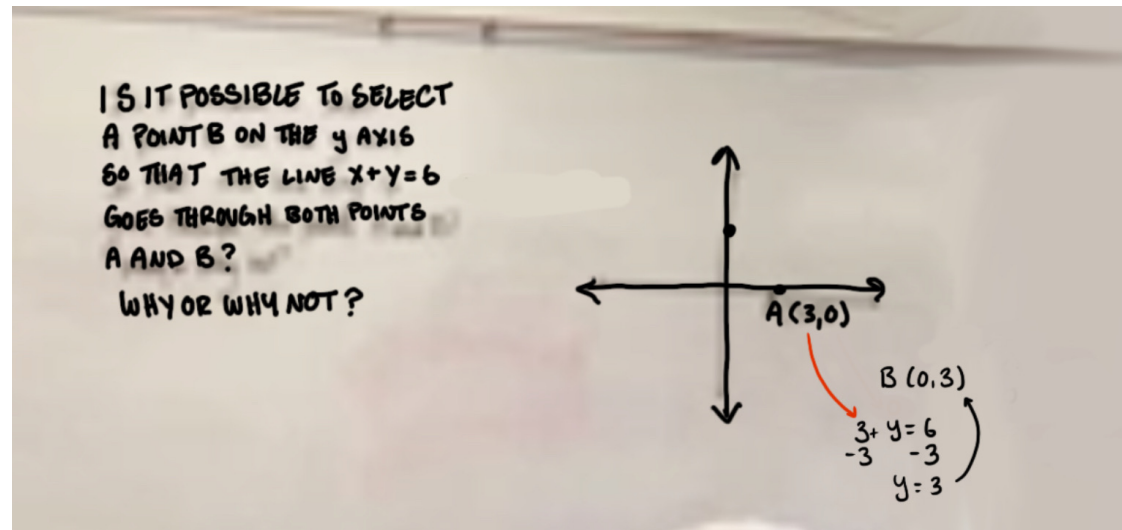 IS IT POSSIBLE TO SELECT
A POINT B ON THE y AXIS
SO THAT THE LINE X+Y=6
GOES THROUGH BOTH POINTS
A AND B?
WHY OR WHY NOT?
A (3,0)
B (0,3)
3+ y = 6
-3 -3
y = 3